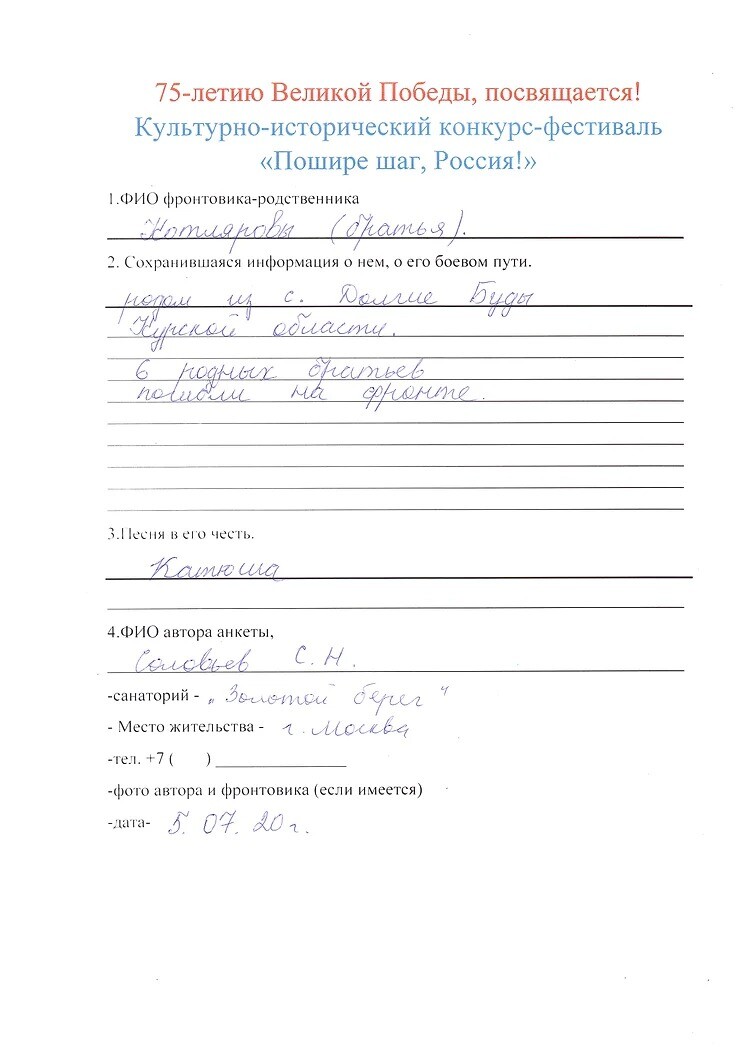 75-летию Великой Победы, посвящается!
Культурно-исторический конкурс-фестиваль
«Пошире шаг, Россия!»
1.ФИО фронтовика-родственника
Котляровы (братья).
2. Сохранившаяся информация о нем, о его боевом пути.
родом из с. Долгие Буды
Курской области.
6 родных братьев
погибли на фронте.
3.Песня в его честь.
Катюша
4.ФИО автора анкеты,
Соловьев С.Н.
-санаторий - „Золотой берег"
- Место жительства - г. Москва
-тел. +7 ( ) ________________
-фото автора и фронтовика (если имеется)
-дата- 5. 07. 20 г.